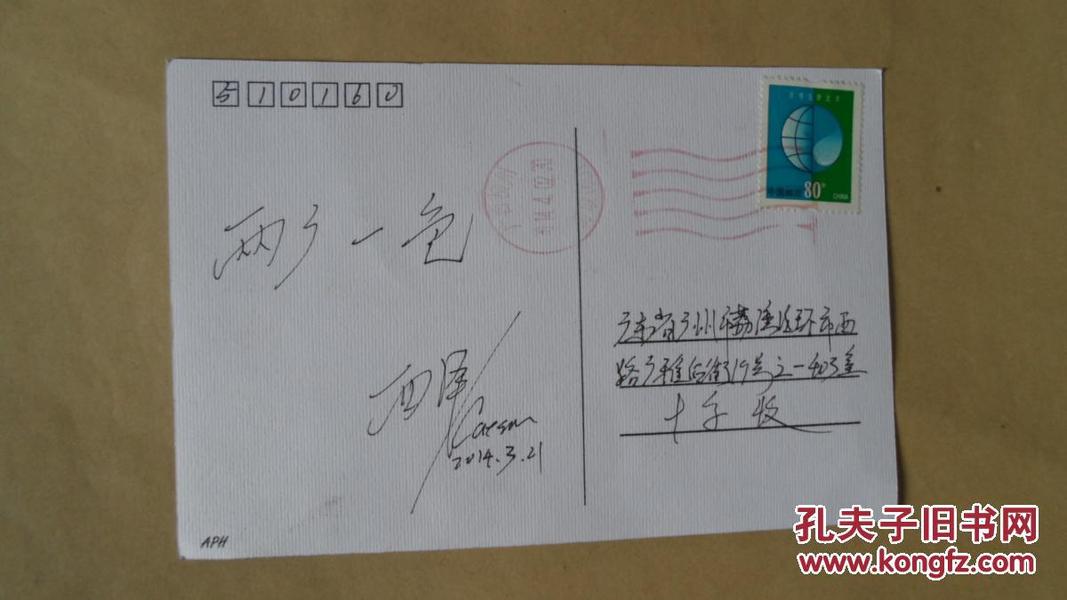 510160
两广一色
西泽
Caesar
2014.3.21
APH
中国邮政 80分
CHINA
广东省广州市荔湾区环市西
路广雅后街19号之一403室
十年 收
孔夫子旧书网
www.kongfz.com